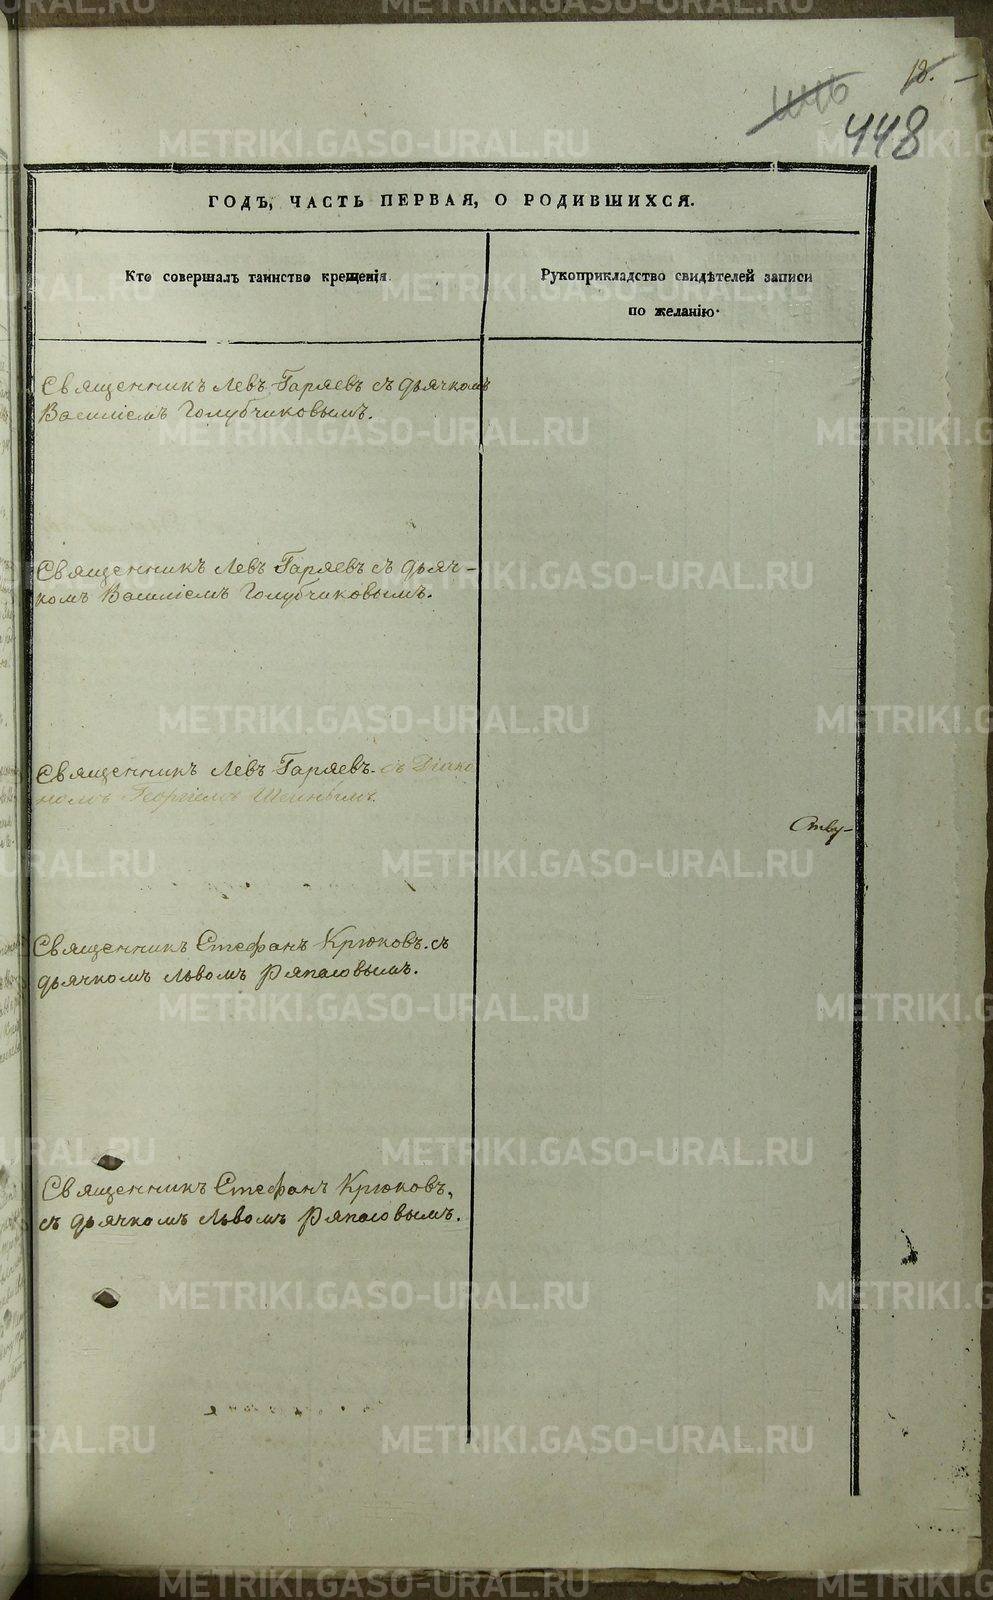 12.
446
448
ГОДЪ, ЧАСТЬ ПЕРВАЯ, О РОДИВШИХСЯ.
Кто совершалъ таинство крещенія.
Рукоприкладство свидѣтелей записи
по желанію.
Священникъ Левъ Гаряевъ съ дьячкомъ
Василіемъ Голубчиковымъ.
Священникъ Левъ Гаряевъ съ дьяч-
комъ Василіемъ Голубчиковымъ.
Священникъ Левъ Гаряевъ. съ Діако
номъ Георгіемъ
Священникъ Стефанъ Крюковъ. съ
дьячкомъ Львомъ Ряпасовымъ.
Священникъ Стефанъ Крюковъ,
съ дьячкомъ Львомъ Ряпасовымъ.
METRIKI.GASO-URAL.RU